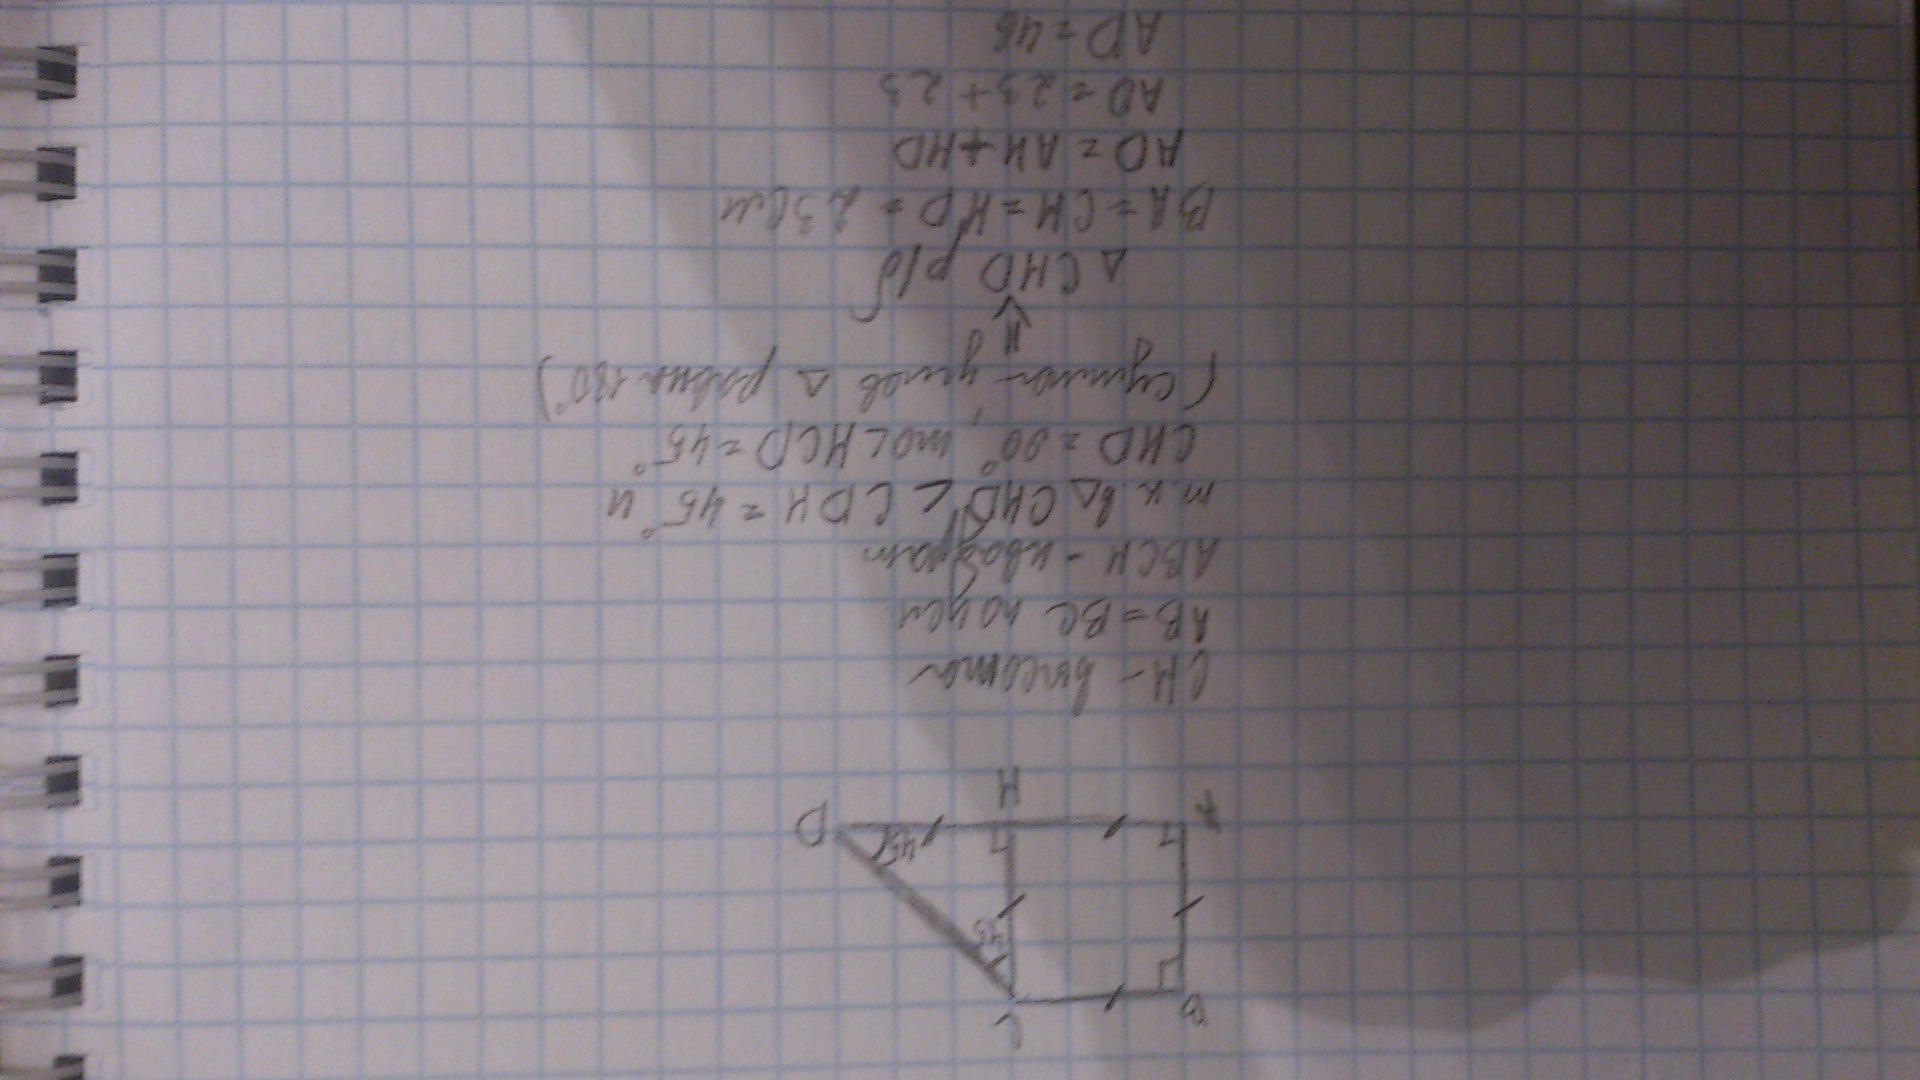 B
C
45
45
A
H
D
CH - высота
AB = BC по усл
ABCH - квадрат
т.к. в △ CHD ∠ CDH = 45° и
CHD = 90°, то ∠ HCD = 45°
(сумма углов △ равна 180°)
⇓
△ CHD р/б
BA = CH = HD = 23см
AD = AH + HD
AD = 23 + 23
AD = 46